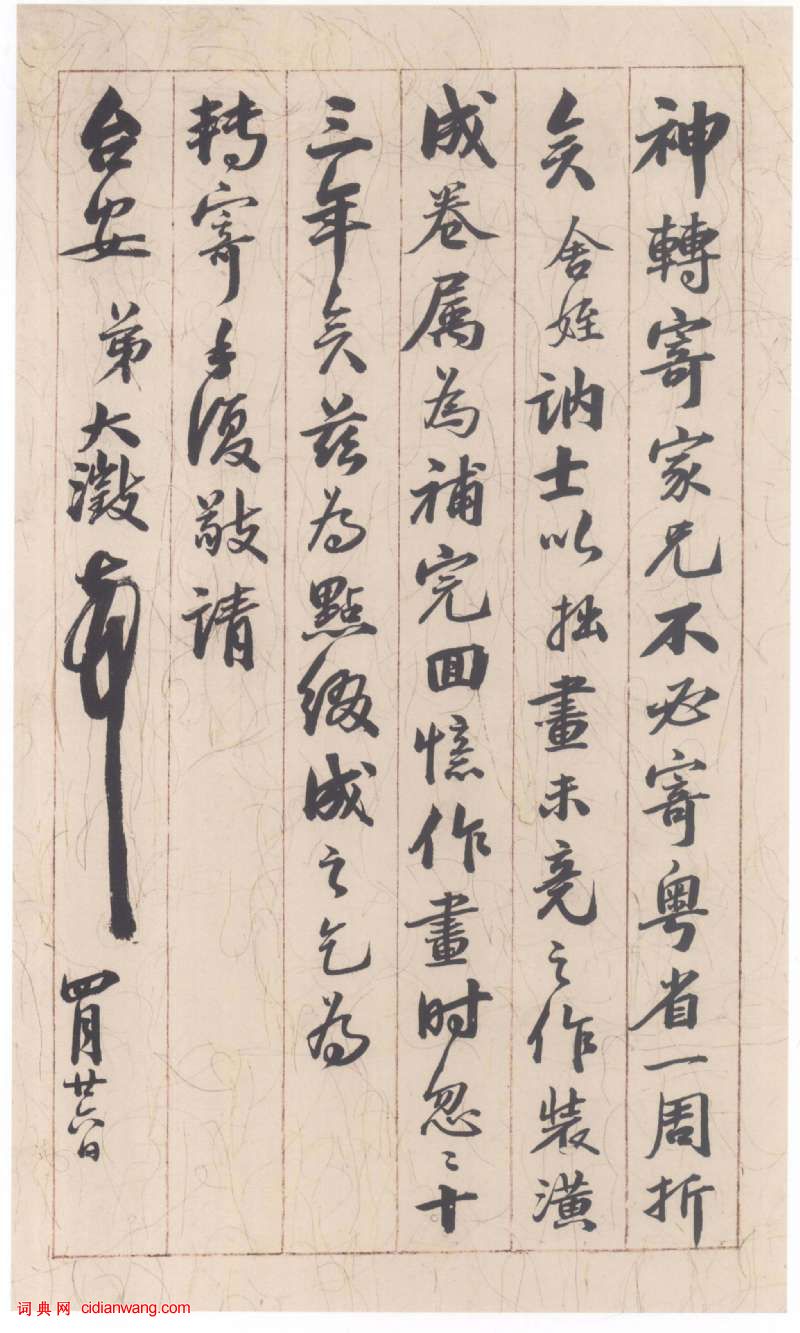 神轉寄家兄不必寄粤省一周折
矣舍姪訥士以拙畫未竟之作装潢
成卷属為補完回憶作畫时忽〻十
三年矣兹为點缀成之乞為
轉寄手復敬請
台安 弟大澂 四月廿六日
词典网 cidianwang.com